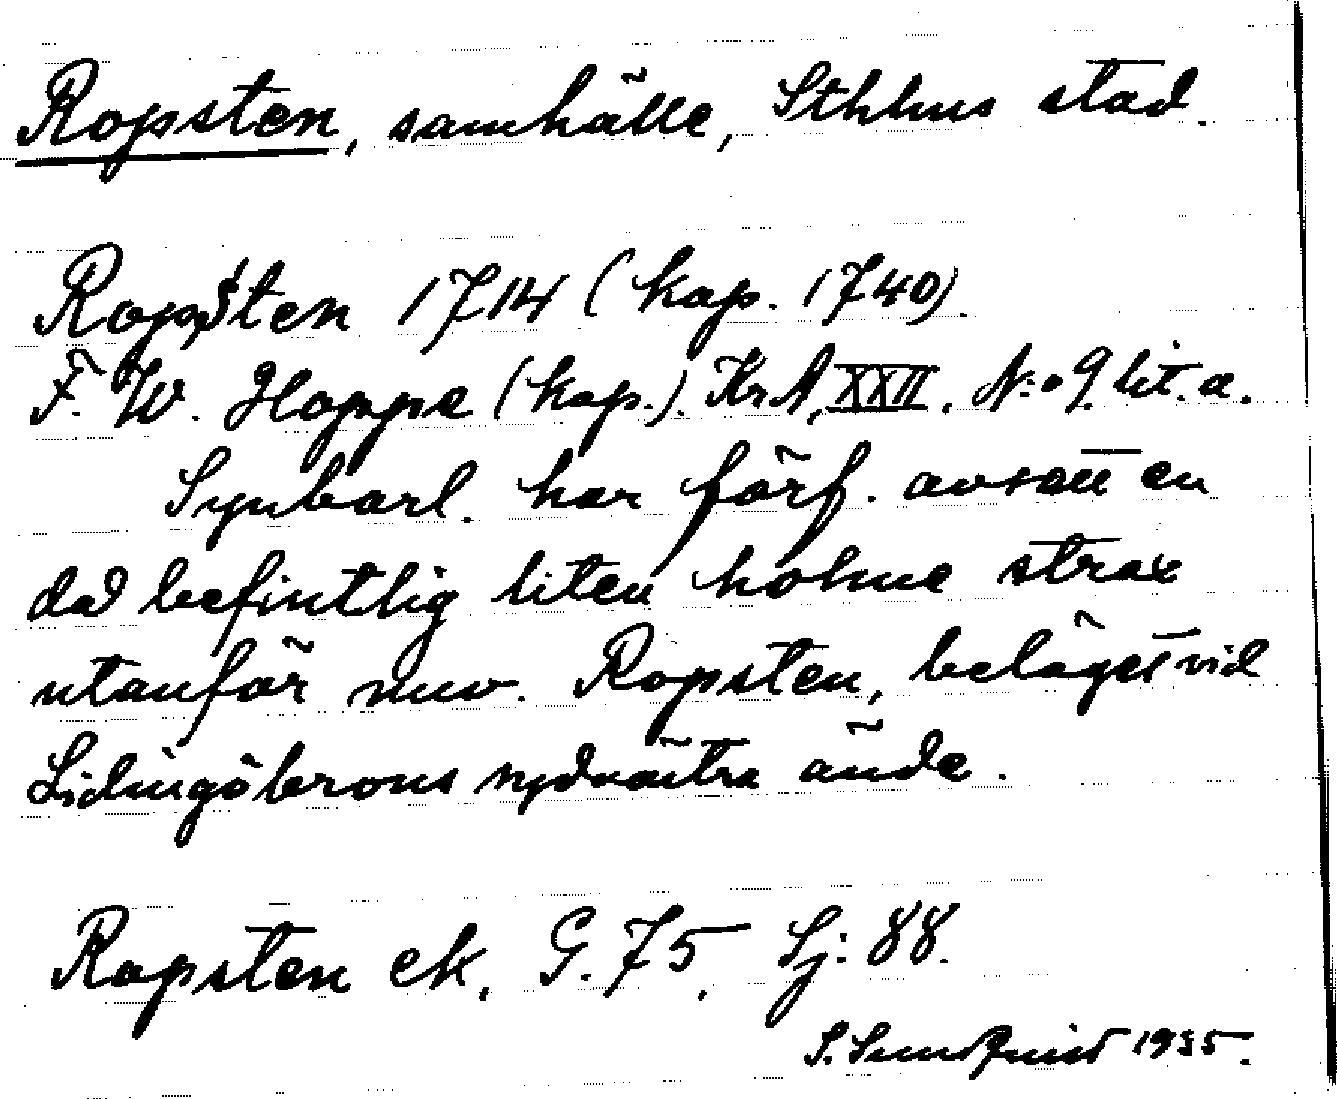 Ropsten, samhälle, Sthlms stad.
Ropsten 1714 (kop. 1740).
F. W. Hoppe (kop.). KrA, XXII, N:o 9. lit. a.
Synbarl. har förf. avsett en
då befintlig liten holme strax
utanför nuv. Ropsten, beläget vid
Lidingöbrons sydvästra ände.
Ropsten ek. G. 75. Sj: 88.
S. Sundquist 1935.